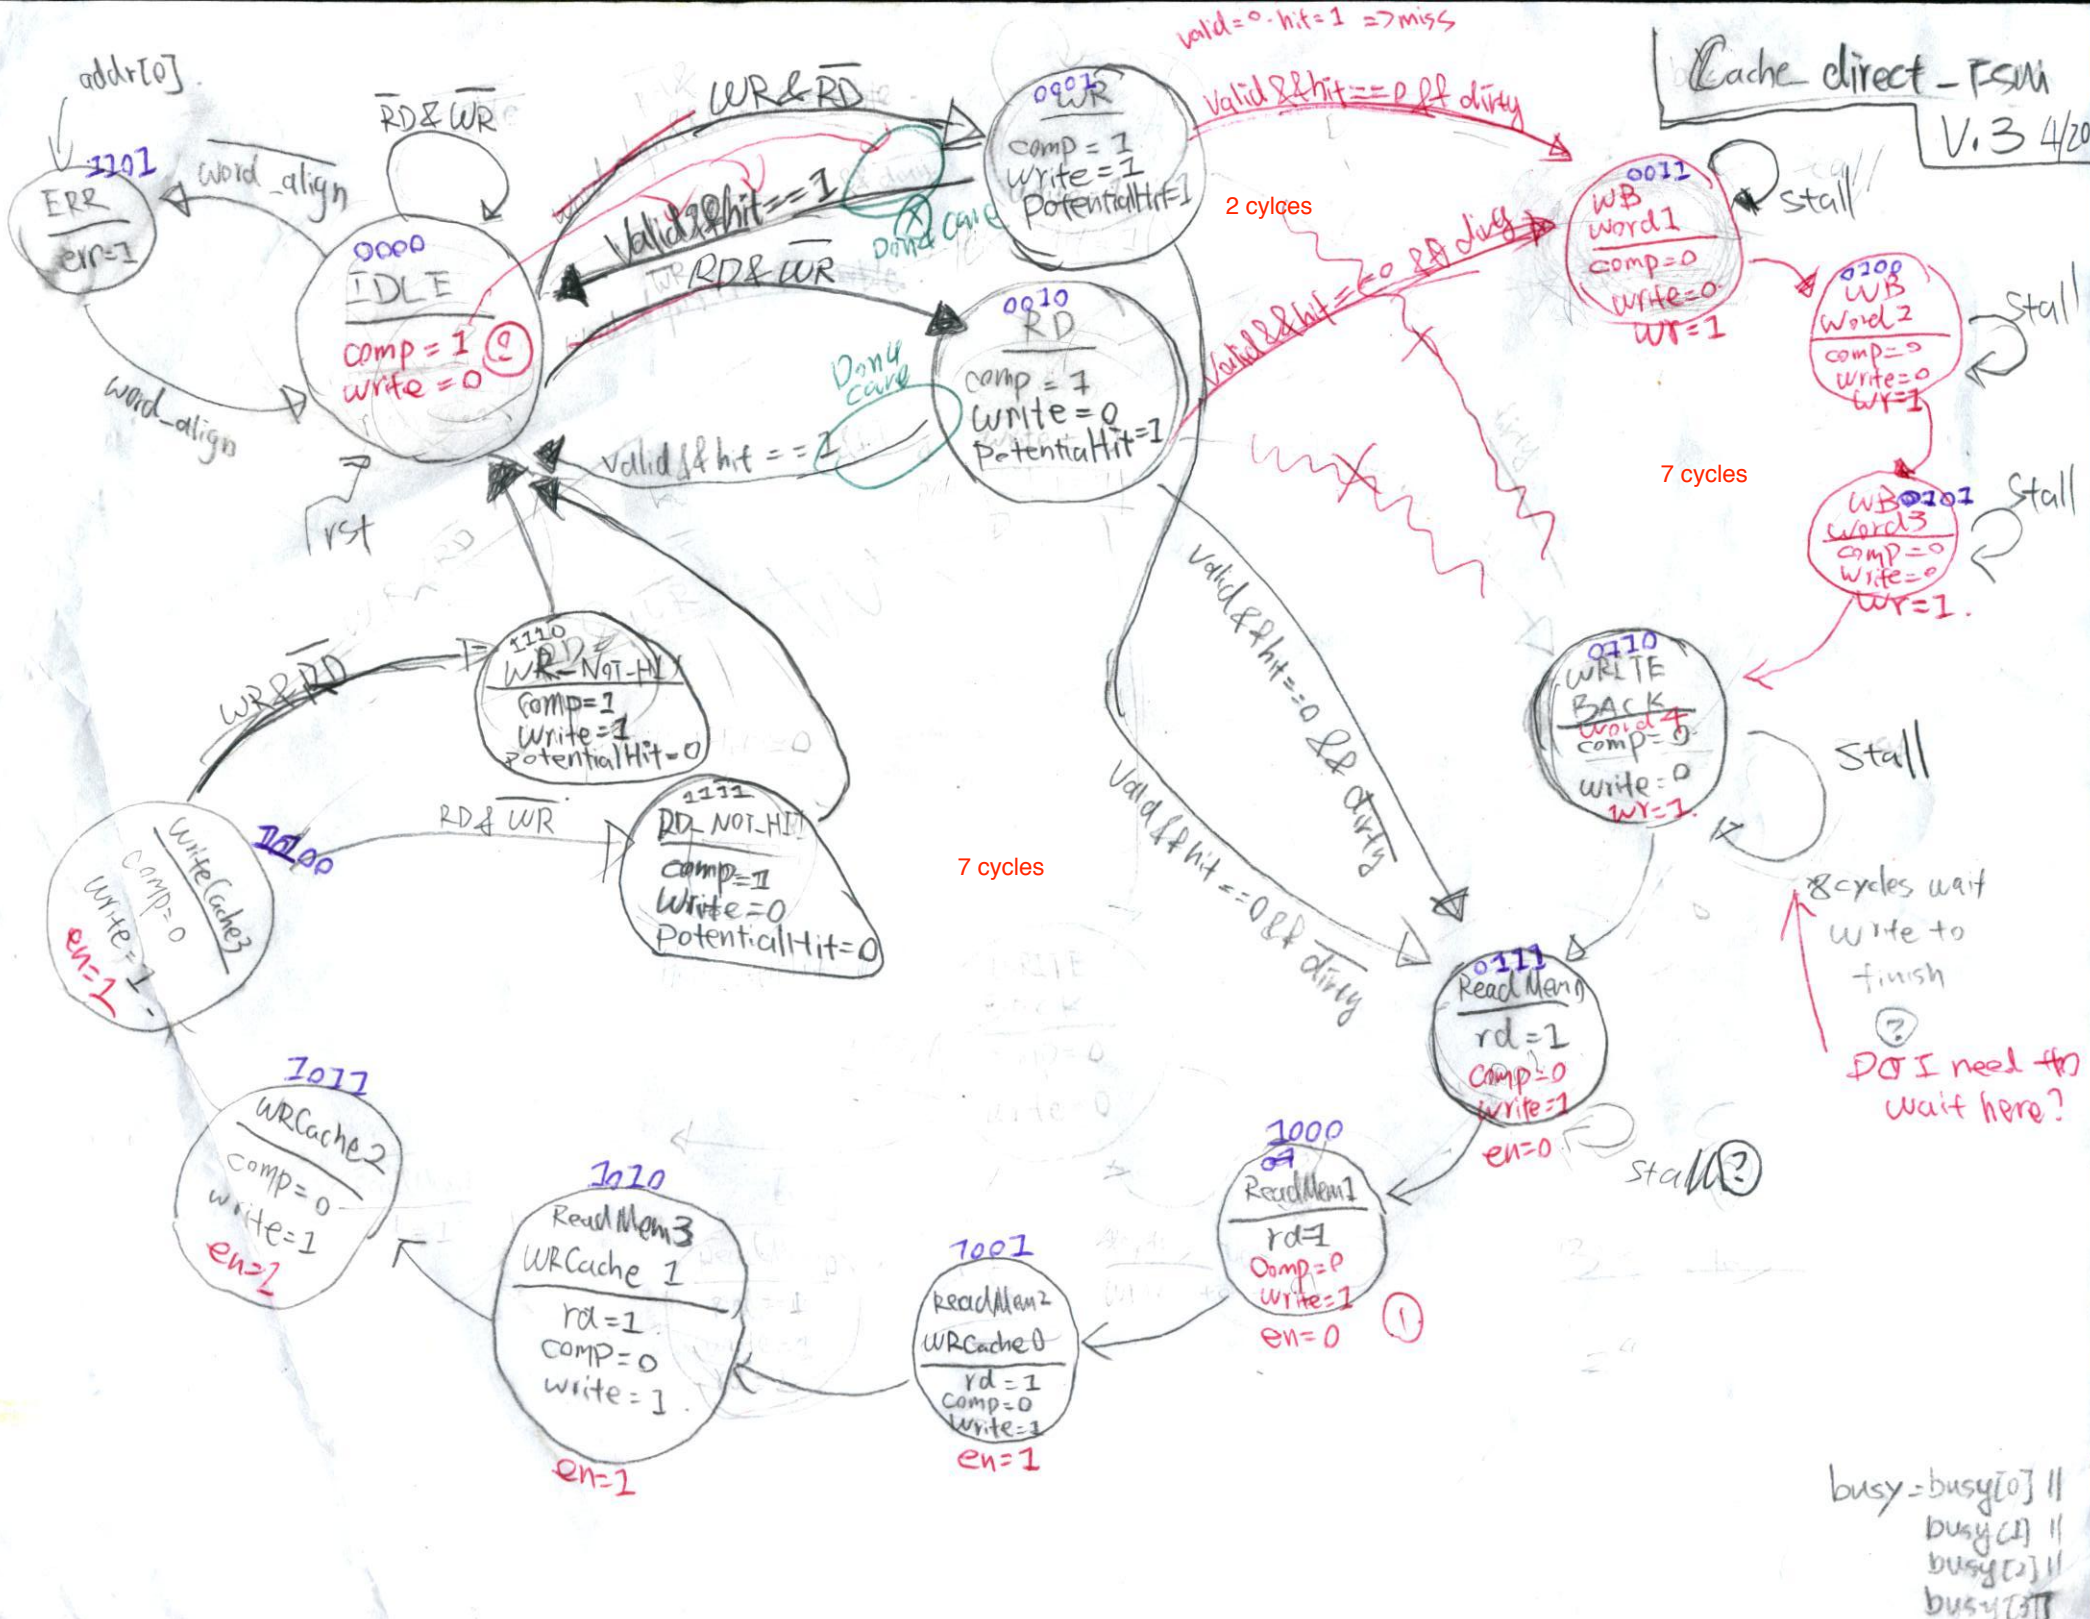 Cache_direct_FSM
V.3 4/20
addr[0]
1101
ERR
err=1
word_align
word_align
RD&WR
0000
IDLE
comp = 1
write = 0
2
rst
WR&RD
Valid&&hit==1
Dont care
RD&WR
Dont
care
Valid&&hit==1
0001
WR
comp = 1
write = 1
PotentialHit=1
0010
RD
comp = 1
write = 0
PotentialHit=1
valid=0·hit=1 =>miss
Valid&&hit==0 && dirty
2 cylces
Valid&&hit==0 && dirty
0011
WB
word1
comp=0
write=0
wr=1
Stall
0100
WB
Word2
comp=0
write=0
wr=1
Stall
7 cycles
WB 0101
word3
comp=0
write=0
wr=1.
Stall
0110
WRITE
BACK
word4
comp=0
write=0
wr=1.
Stall
8cycles wait
write to
finish
?
DO I need to
wait here?
Valid&&hit==0 && dirty
Valid&&hit==0 && dirty
0111
ReadMem0
rd=1
comp=0
write=1
en=0
Stall?
1000
ReadMem1
rd=1
comp=0
write=1
en=0
1
1001
ReadMem2
WRCache0
rd=1
comp=0
write=1
en=1
1010
ReadMem3
WRCache 1
rd=1
comp=0
write=1
en=1
1011
WRCache2
comp=0
write=1
en=1
1100
WriteCache3
comp=0
write=1
en=1
WR&RD
RD&WR
1110
WR_NOT_HIT
comp=1
write=1
potentialHit=0
1111
RD_NOT_HIT
comp=1
write=0
potentialHit=0
7 cycles
busy=busy[0] ||
busy[1] ||
busy[2] ||
busy[3]